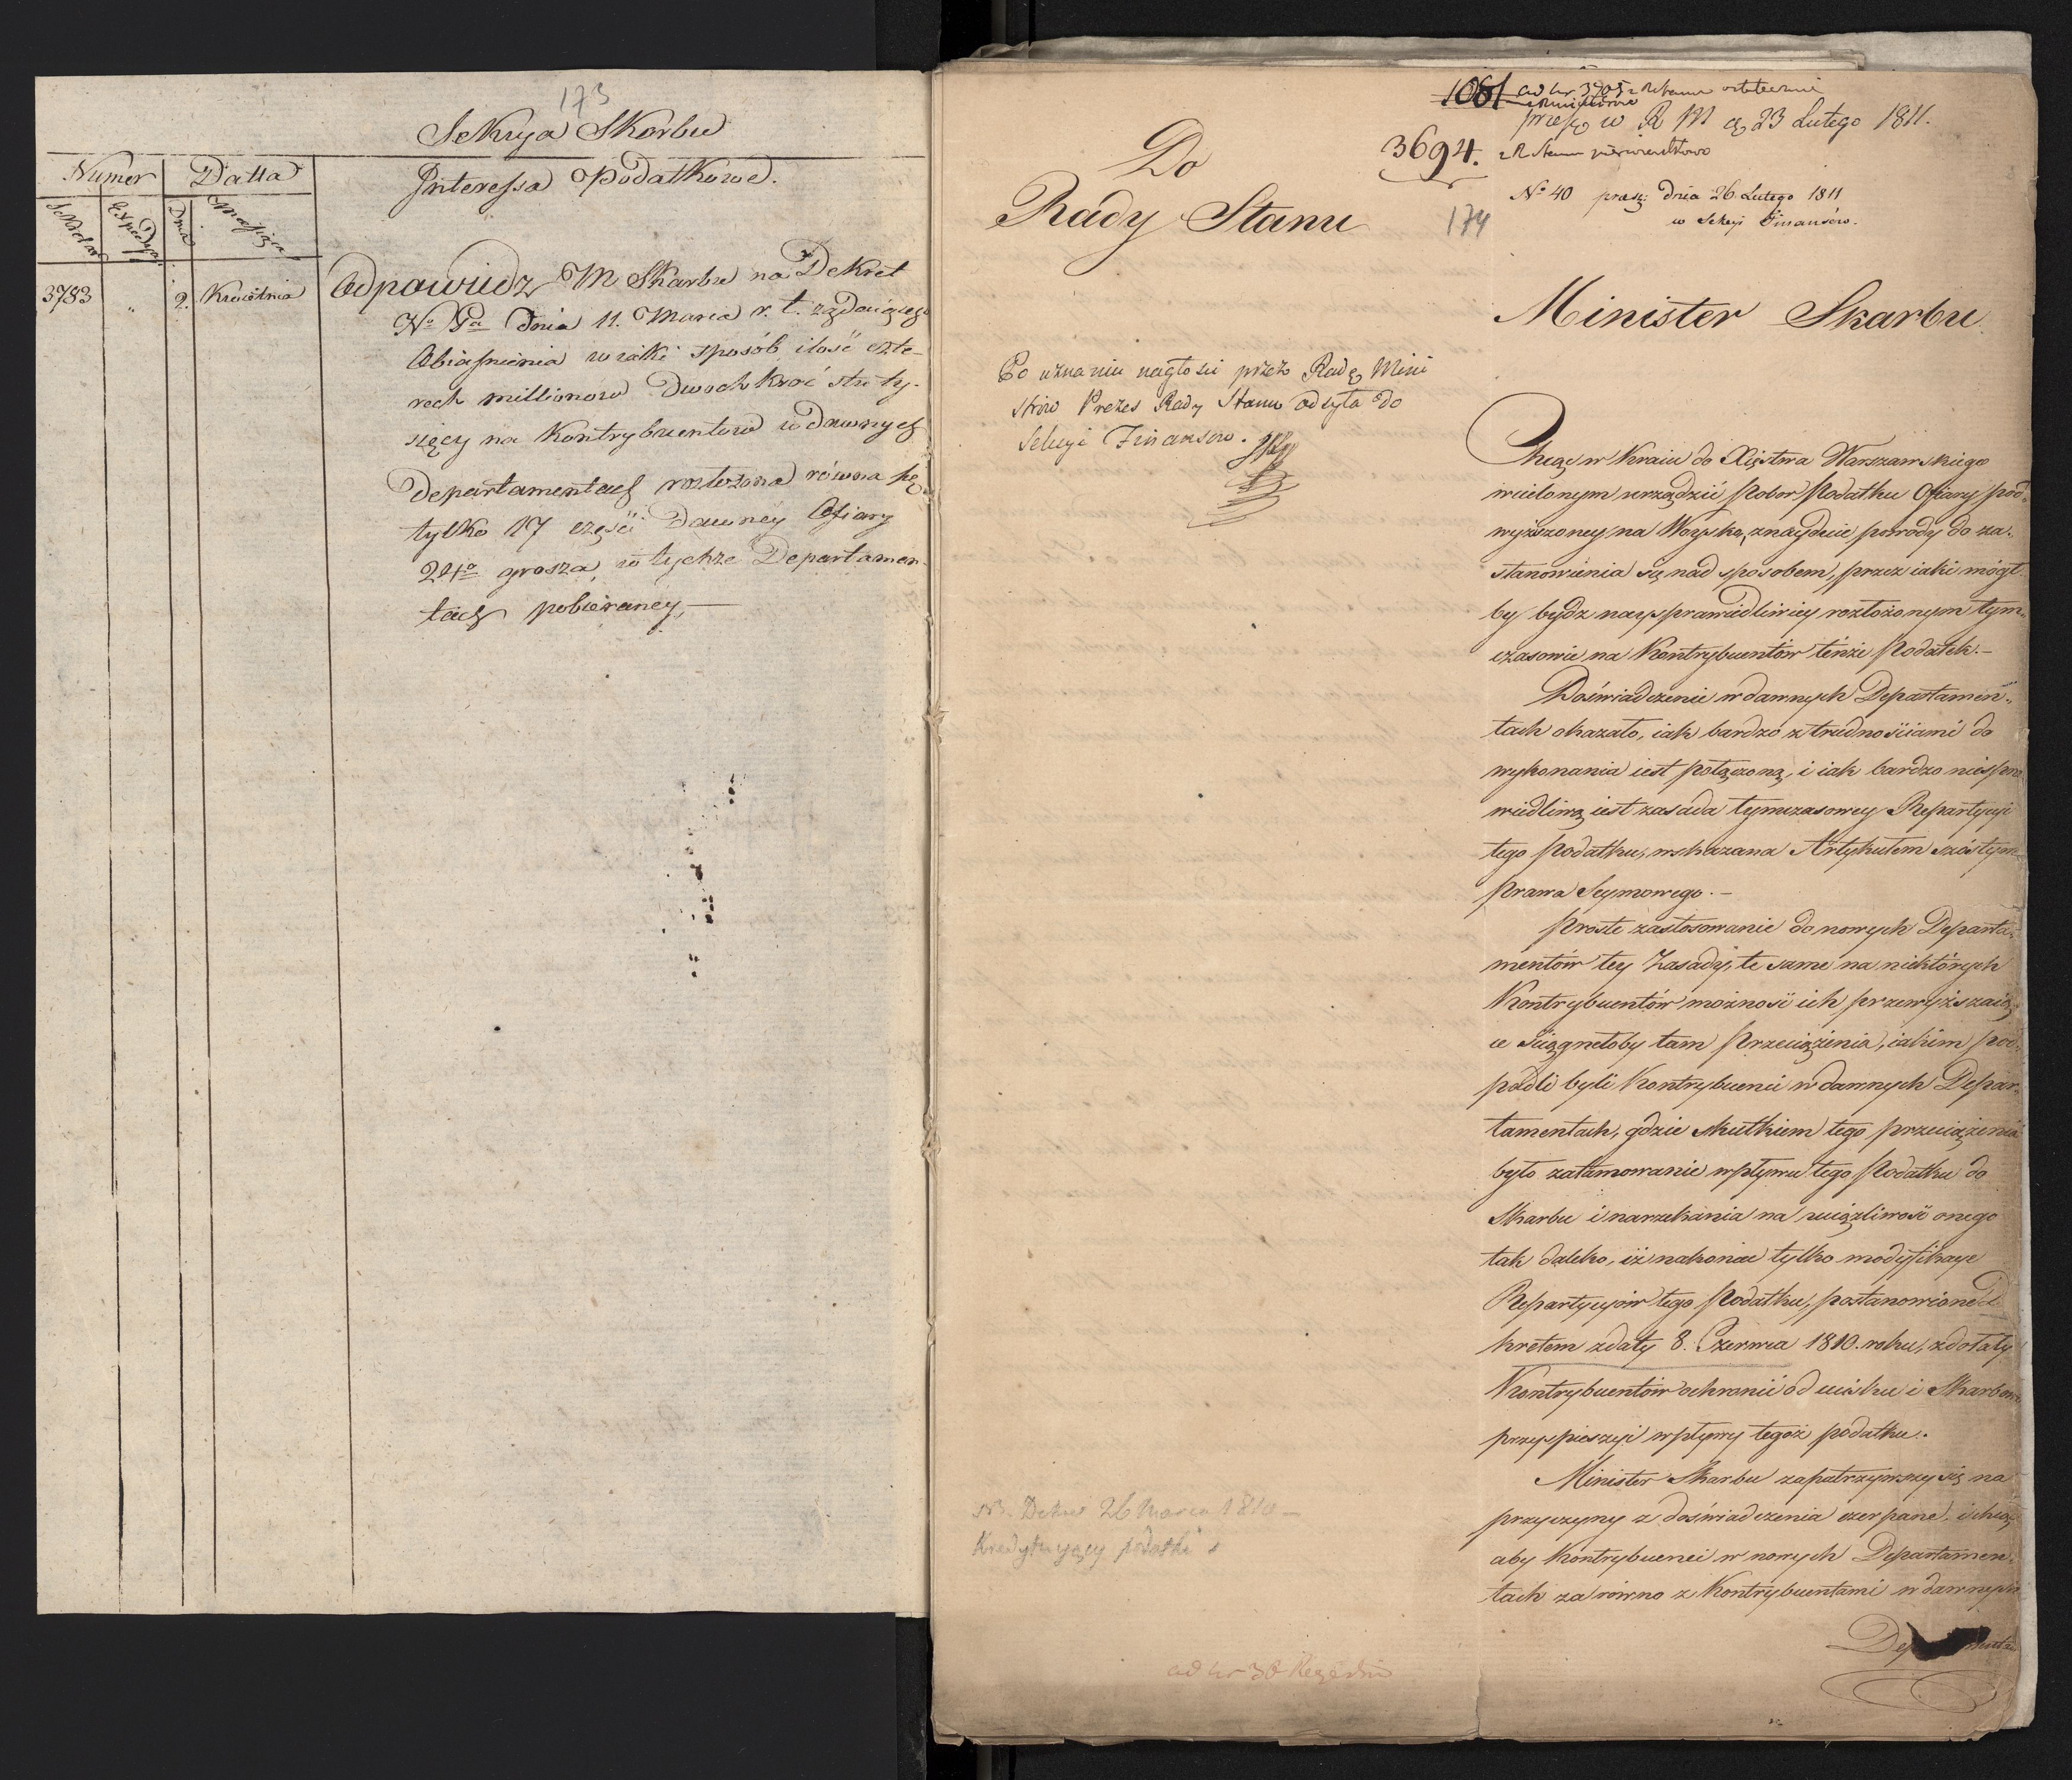 173
Sekcya Skarbu
Numer Datta
Interessa Podatkowe.
Sekretar. Expedyc. Dnia Miesiąca
3783 " 2. Kwietnia
Odpowiedz M Skarbu na Dekret
Nº Pa Dnia 11. Marca r. t. żądaiącego
Obiaśnienia w iaki sposób ilość czte-
rech millionow Dwochkroć sto ty-
sięcy na Kontrybuentow w dawnych
Departamentach rozłożona równa się
tylko 17 części Dawney Ofiary
24º grosza, w tychże Departamen-
tach pobieraney,—
1061 ad nr. 3705 z R Stanu ostatecznie
Ministrów
przesz. w R M d. 23 Lutego 1811.
3694. z R Stanu
Nº 40 prasz: Dnia 26 Lutego 1811
w Sekcyi Finansów.
174
Do
Rady Stanu
Minister Skarbu
Po uznaniu nagłości przez Radę Mini
strów Prezes Rady Stanu odsyła do
Sekcyi Finansow.
Chcąc w Kraiu do Xięstwa Warszawskiego
wcielonym urządzić pobor Podatku Ofiary pod-
wyższoney na Woysko, znayduie powody do za-
stanowienia się nad sposobem, przez iaki mógł-
by bydz naysprawiedliwiey rozłożonym tym-
czasowie na Kontrybuentów tenże Podatek.—
Doświadczenie w dawnych Departamen-
tach okazało, iak bardzo z trudnościami do
wykonania iest połączoną, i iak bardzo niespra
wiedliwą iest zasada tymczasowey Repartycyi
tego Podatku, wskazana Artykułem szóstym
Prawa Seymowego.—
Proste zastosowanie do nowych Departa-
mentów tey Zasady, te same na niektórych
Kontrybuentów możność ich przewyższaią
ce ściągnęłoby tam Przeciążenia, iakim pod-
padli byli Kontrybuenci w dawnych Depar-
tamentach, gdzie skutkiem tego przeciążenia
było zatamowanie wpływu tego Podatku do
Skarbu i narzekania na uciążliwość onego
tak daleko, iż nakoniec tylko modyfikacye
Repartycyiów tego Podatku, postanowione De
kretem z daty 8. Czerwca 1810. roku, zdołały
Kontrybuentów ochronić od ucisku i Skarbowi
przyspieszyć wpływy tegoż podatku.
Minister Skarbu zapatrzywszy się na
przyczyny z doświadczenia czerpane, i chcąc
aby Kontrybuenci w nowych Departamen-
tach za równo z Kontrybuentami w dawnych
NB. Dekret 26 Marca 1810—
Kredytuyący podatki
ad nr 38